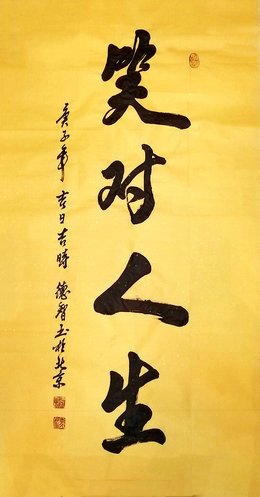 笑对人生
庚子年吉日吉時德智书於北京